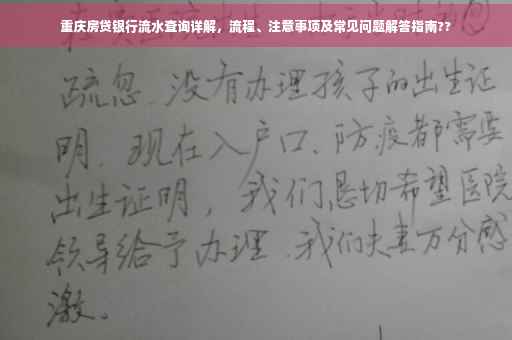 重庆房贷银行流水查询详解，流程、注意事项及常见问题解答指南??
疏忽、没有办理孩子的出生证
明、现在入户口、防疫都需要
出生证明，我们恳切希望医院
领导给予办理、我们夫妻万分感
激。